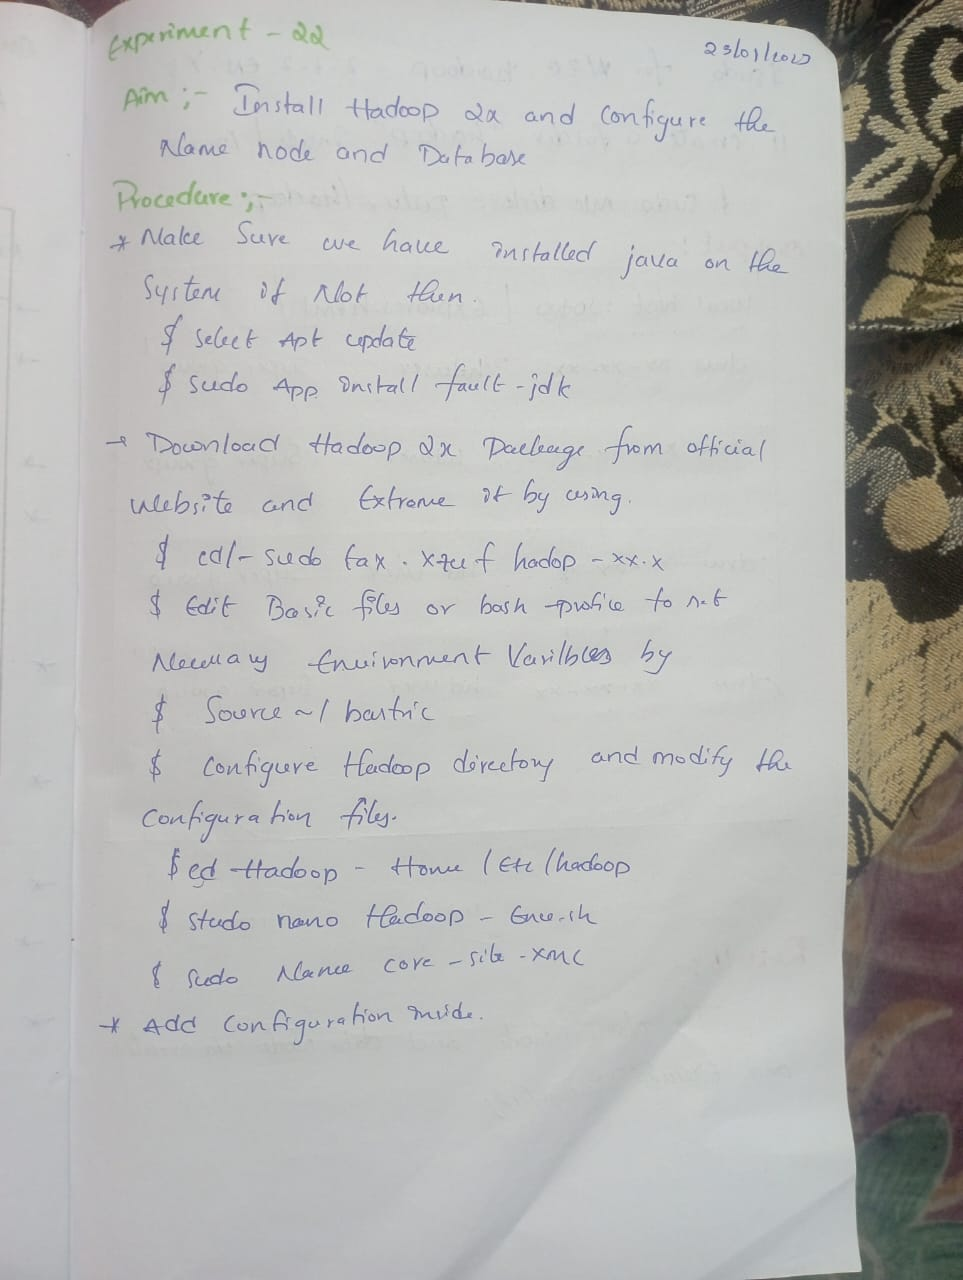 Experiment - 22
23/01/2023
Aim :- Install Hadoop 2x and Configure the
Name node and Database
Procedure :-
* Make Sure we have installed java on the
System if Not then.
$ Select Apt update
$ sudo App install fault - jdk
→ Download Hadoop 2x Package from official
website and Extrame it by using.
$ cd/- sudo tax . xzuf hadop - xx.x
$ Edit Basic files or bash profice to net
Necessary Environment Varilbles by
$ Source ~/ bastric
$ Configure Hadoop directory and modify the
Configuration files.
$ cd Hadoop - Home / Etc /hadoop
$ studo nano Hadoop - Enu.sh
$ sudo Nance core - site - xmc
* Add Configuration inside.